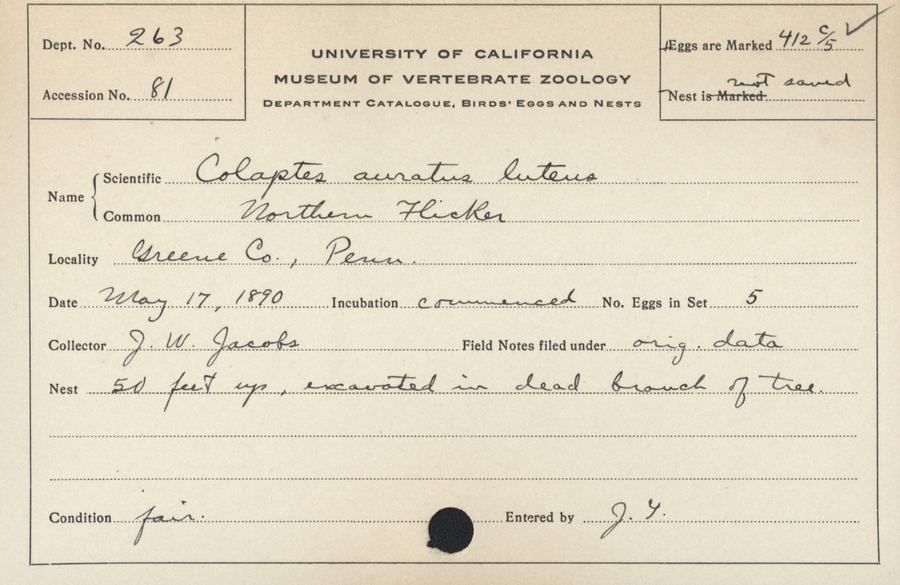 Dept. No. 263
Accession No. 81
UNIVERSITY OF CALIFORNIA
MUSEUM OF VERTEBRATE ZOOLOGY
DEPARTMENT CATALOGUE, BIRDS' EGGS AND NESTS
Eggs are Marked 412 c/5 ✓
not saved
Nest is Marked
Name
Scientific Colaptes auratus luteus
Common Northern Flicker
Locality Greene Co., Penn.
Date May 17, 1890 Incubation commenced No. Eggs in Set 5
Collector J. W. Jacobs Field Notes filed under orig. data
Nest 50 feet up, excavated in dead branch of tree.
Condition fair. Entered by J. Y.